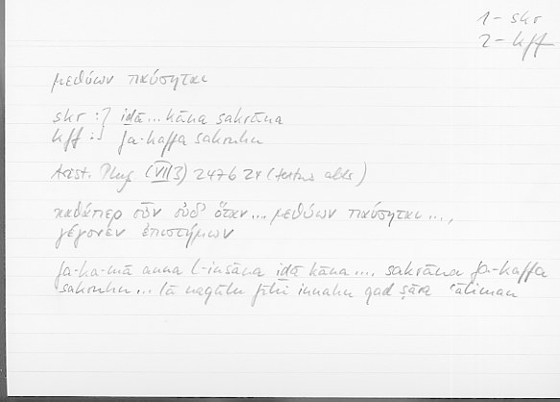 1 – skr
2 – kff
μεθύων παύσηται
skr :} idā ... kāna sakrāna
kff :} fa-kaffa sakruhu
Arist. Phys (VII 3) 247b 24 (textus alter)
καθάπερ οὖν οὐδ' ὅταν ... μεθύων παύσηται ...,
γέγονεν ἐπιστήμων
fa-ka-mā anna l-insāna idā kāna ... sakrāna fa-kaffa
sakruhu ... lā naqūlu fīhi innahu qad ṣāra ʿāliman